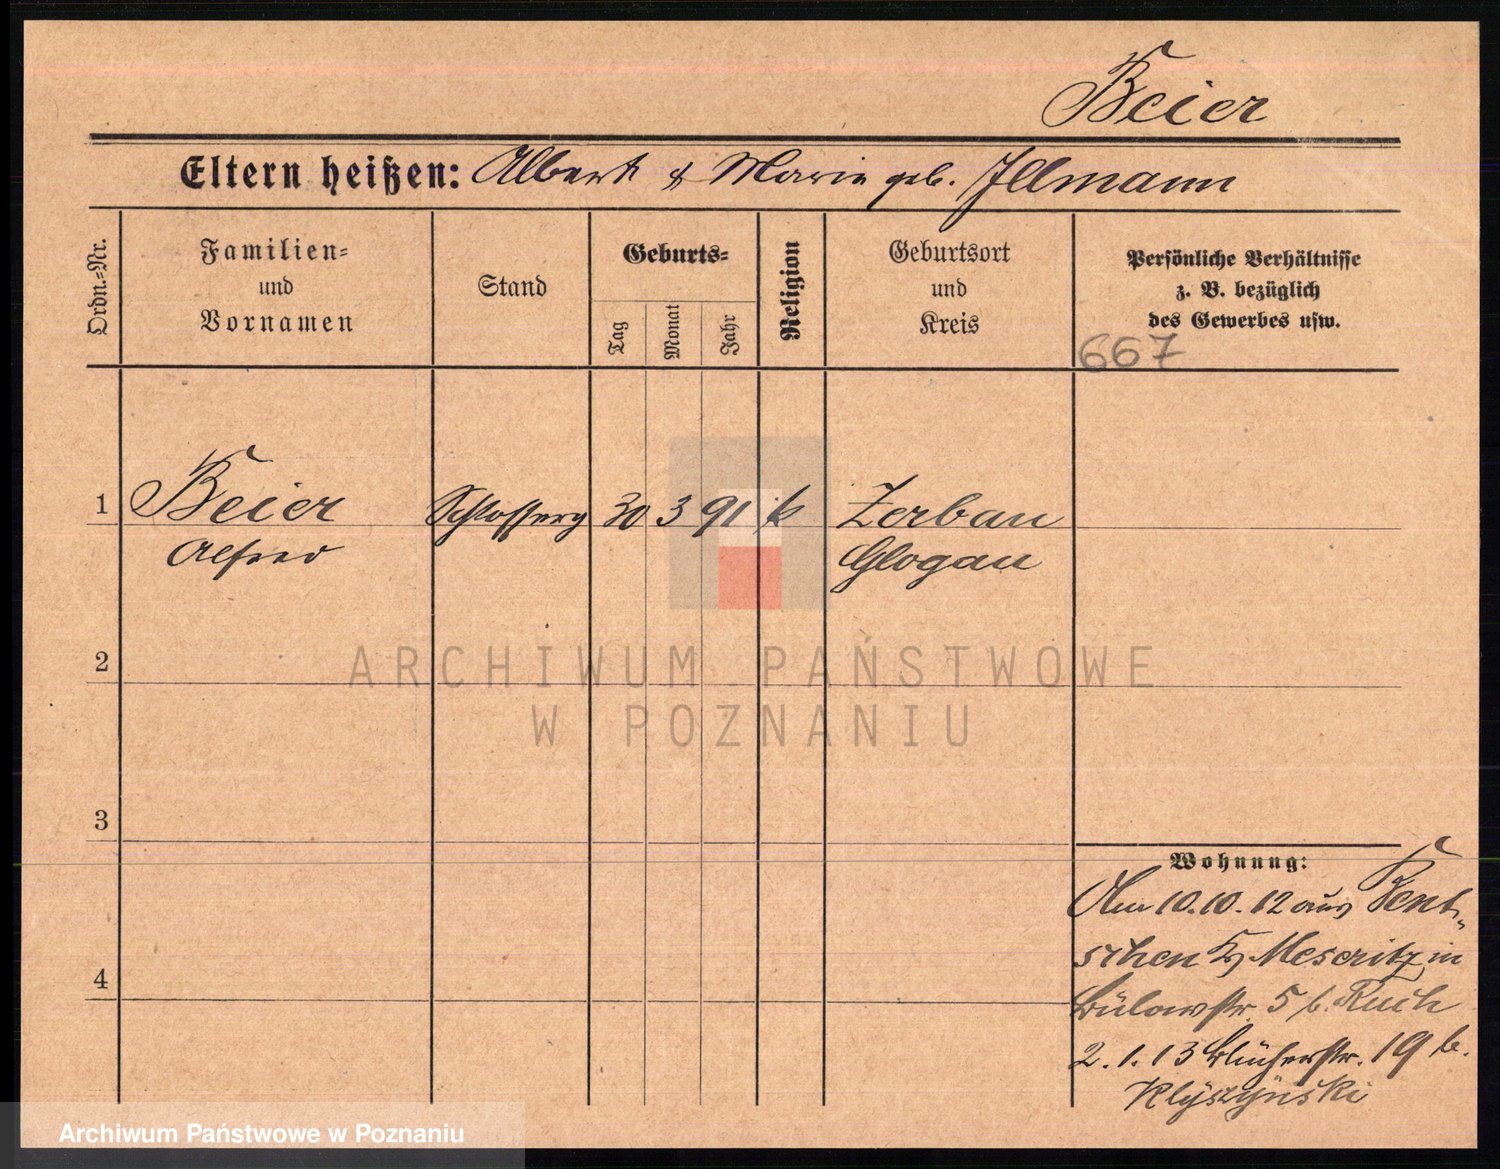 Beier
Eltern heißen: Albert & Marie geb. Illmann
Ordn.-Nr.
Familien-
und
Vornamen
Stand
Geburts-
Tag
Monat
Jahr
Religion
Geburtsort
und
Kreis
Persönliche Verhältnisse
z. B. bezüglich
des Gewerbes usw.
667
1 Beier 30 3 91 k Zerbau
Alfred Glogau
2
3
4
Wohnung:
Am 10.10.12 aus Bent-
schen Kr. Meseritz in
Bülowstr. 5 b. Ruch
2.1.13 Blücherstr. 19 b.
Klyszynski
ARCHIWUM PAŃSTWOWE
W POZNANIU
Archiwum Państwowe w Poznaniu